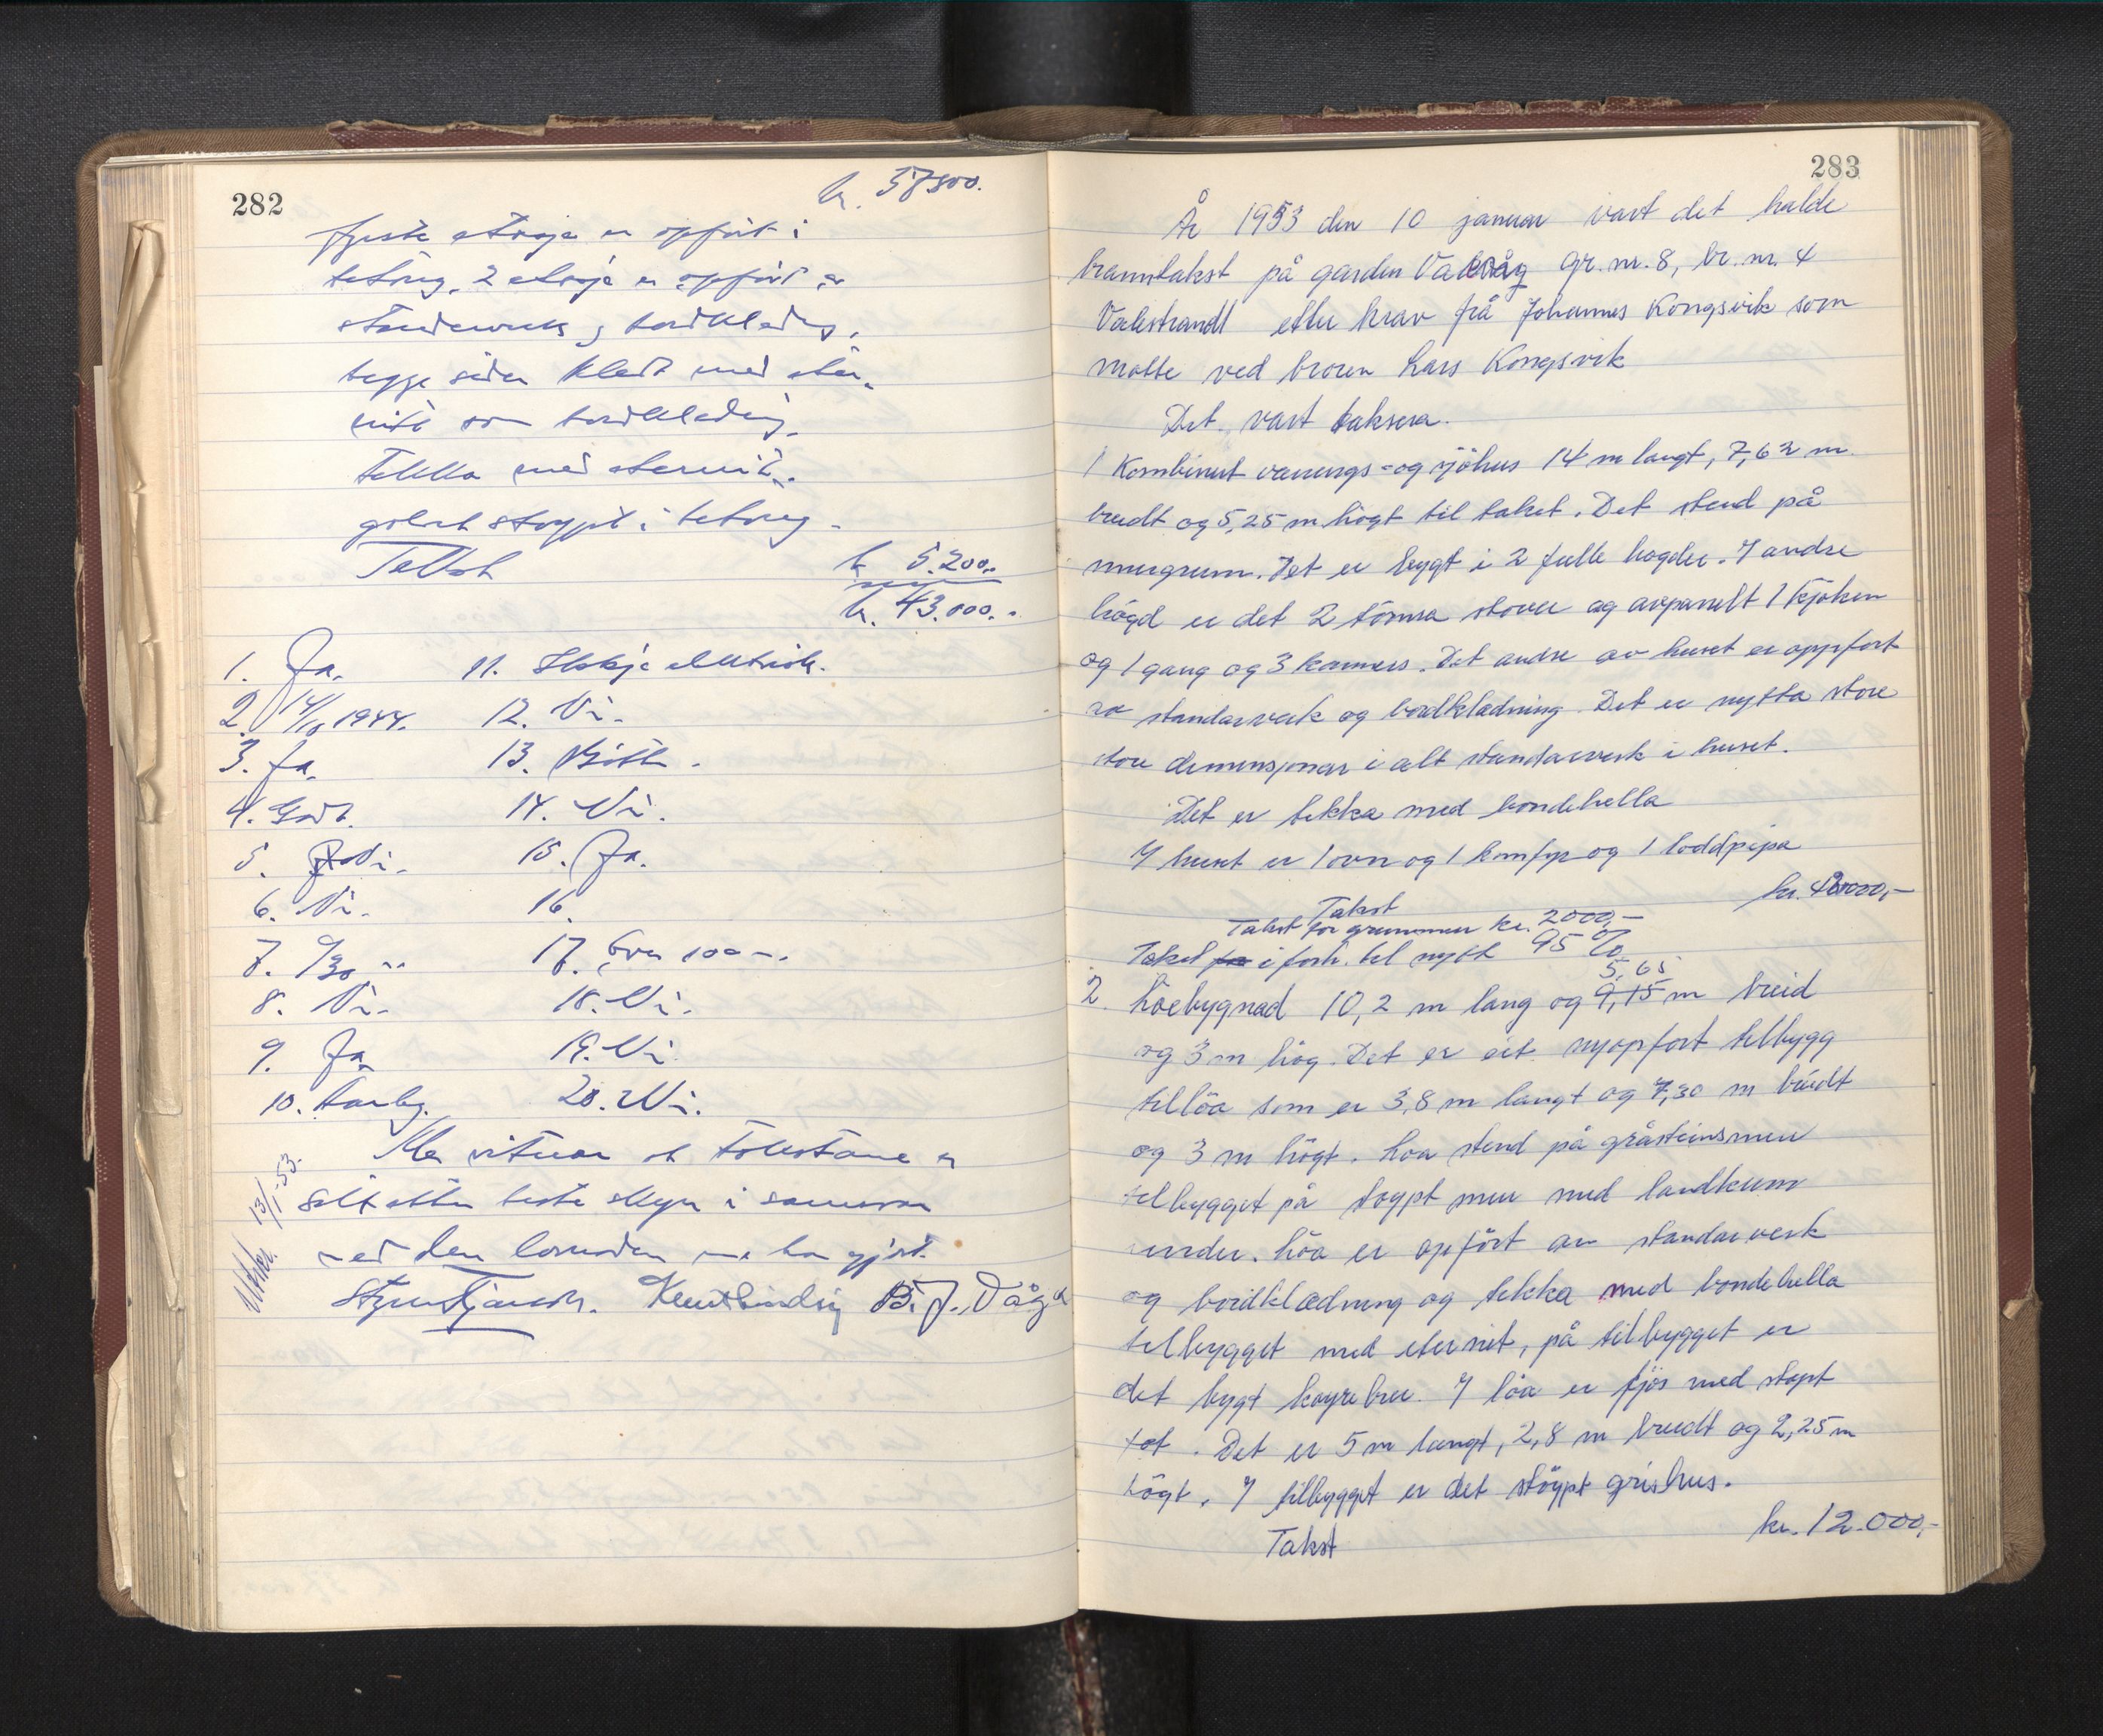 282
kr. 37800.
fyrste etasje er opført i
betong, 2 etasje er opført av
standerverk og bordkledning,
begge sider kledt med eter-
nitt som bordkledning.
Tekka med eternit.
golvet støypt i betong.
Takst kr 5.200.-
kr. 43.000.-
1. Ja. 11. elektrisk.
2. 14/10 1944. 12. Ni.
3. Ja. 13.
4. Godt. 14. Ni.
5. Ni. 15. Ja.
6. Ni. 16.
7. 17. Over 100 m.
8. Ni. 18. Ni.
9. Ja 19. Ni
10. 20. Ni.
Me vitnar at takstane er
sett etter beste skjøn i samsvar
med den lovnaden me har gjort.
Utskr. 13/1-53.
B. J. Våge
283
År 1953 den 10 januar vart det halde
branntakst på garden Valvåg gr. nr. 8, br. nr. 4
Valestrandt etter krav frå Johannes Kongsvik som
møtte ved broren Lars Kongsvik
Det vart taksera.
1 Kombinert vaanings- og sjöhus 14 m langt, 7,62 m
breidt og 5,25 m högt til taket. Det stend på
murgrunn. Det er bygt i 2 fulle høgder. I andre
högd er det 2 tömra stover og avpanelt 1 kjöken
og 1 gang og 3 kammers. Det andre av huset er oppfört
av standarverk og bordklædning. Det er nytta store
store dimensjonar i alt standarverk i huset.
Det er tekka med bondehella
I huset er 1 ovn og 1 komfyr og 1 loddpipa
Takst kr. 43000,-
Takst for grunnmur kr. 2000,-
Takst for i forh. til nytt 95 %
2. Löebygnad 10,2 m lang og 9,15 5,65 m breid
og 3 m hög. Det er eit nyoppfört tilbygg
til löa som er 3,8 m langt og 7,30 m breidt
og 3 m högt. Löa stend på gråsteinsmur
tilbygget på støypt mur med landkum
under. Löa er opfört av standarverk
og bordklædning og tekka med bondehella
tilbygget med eternit, på tilbygget er
det bygt køyrebru. I löa er fjös med støpt
tot. Det er 5 m langt, 2,8 m breidt og 2,25 m
högt. I tilbygget er det støypt grishus.
Takst kr. 12.000,-